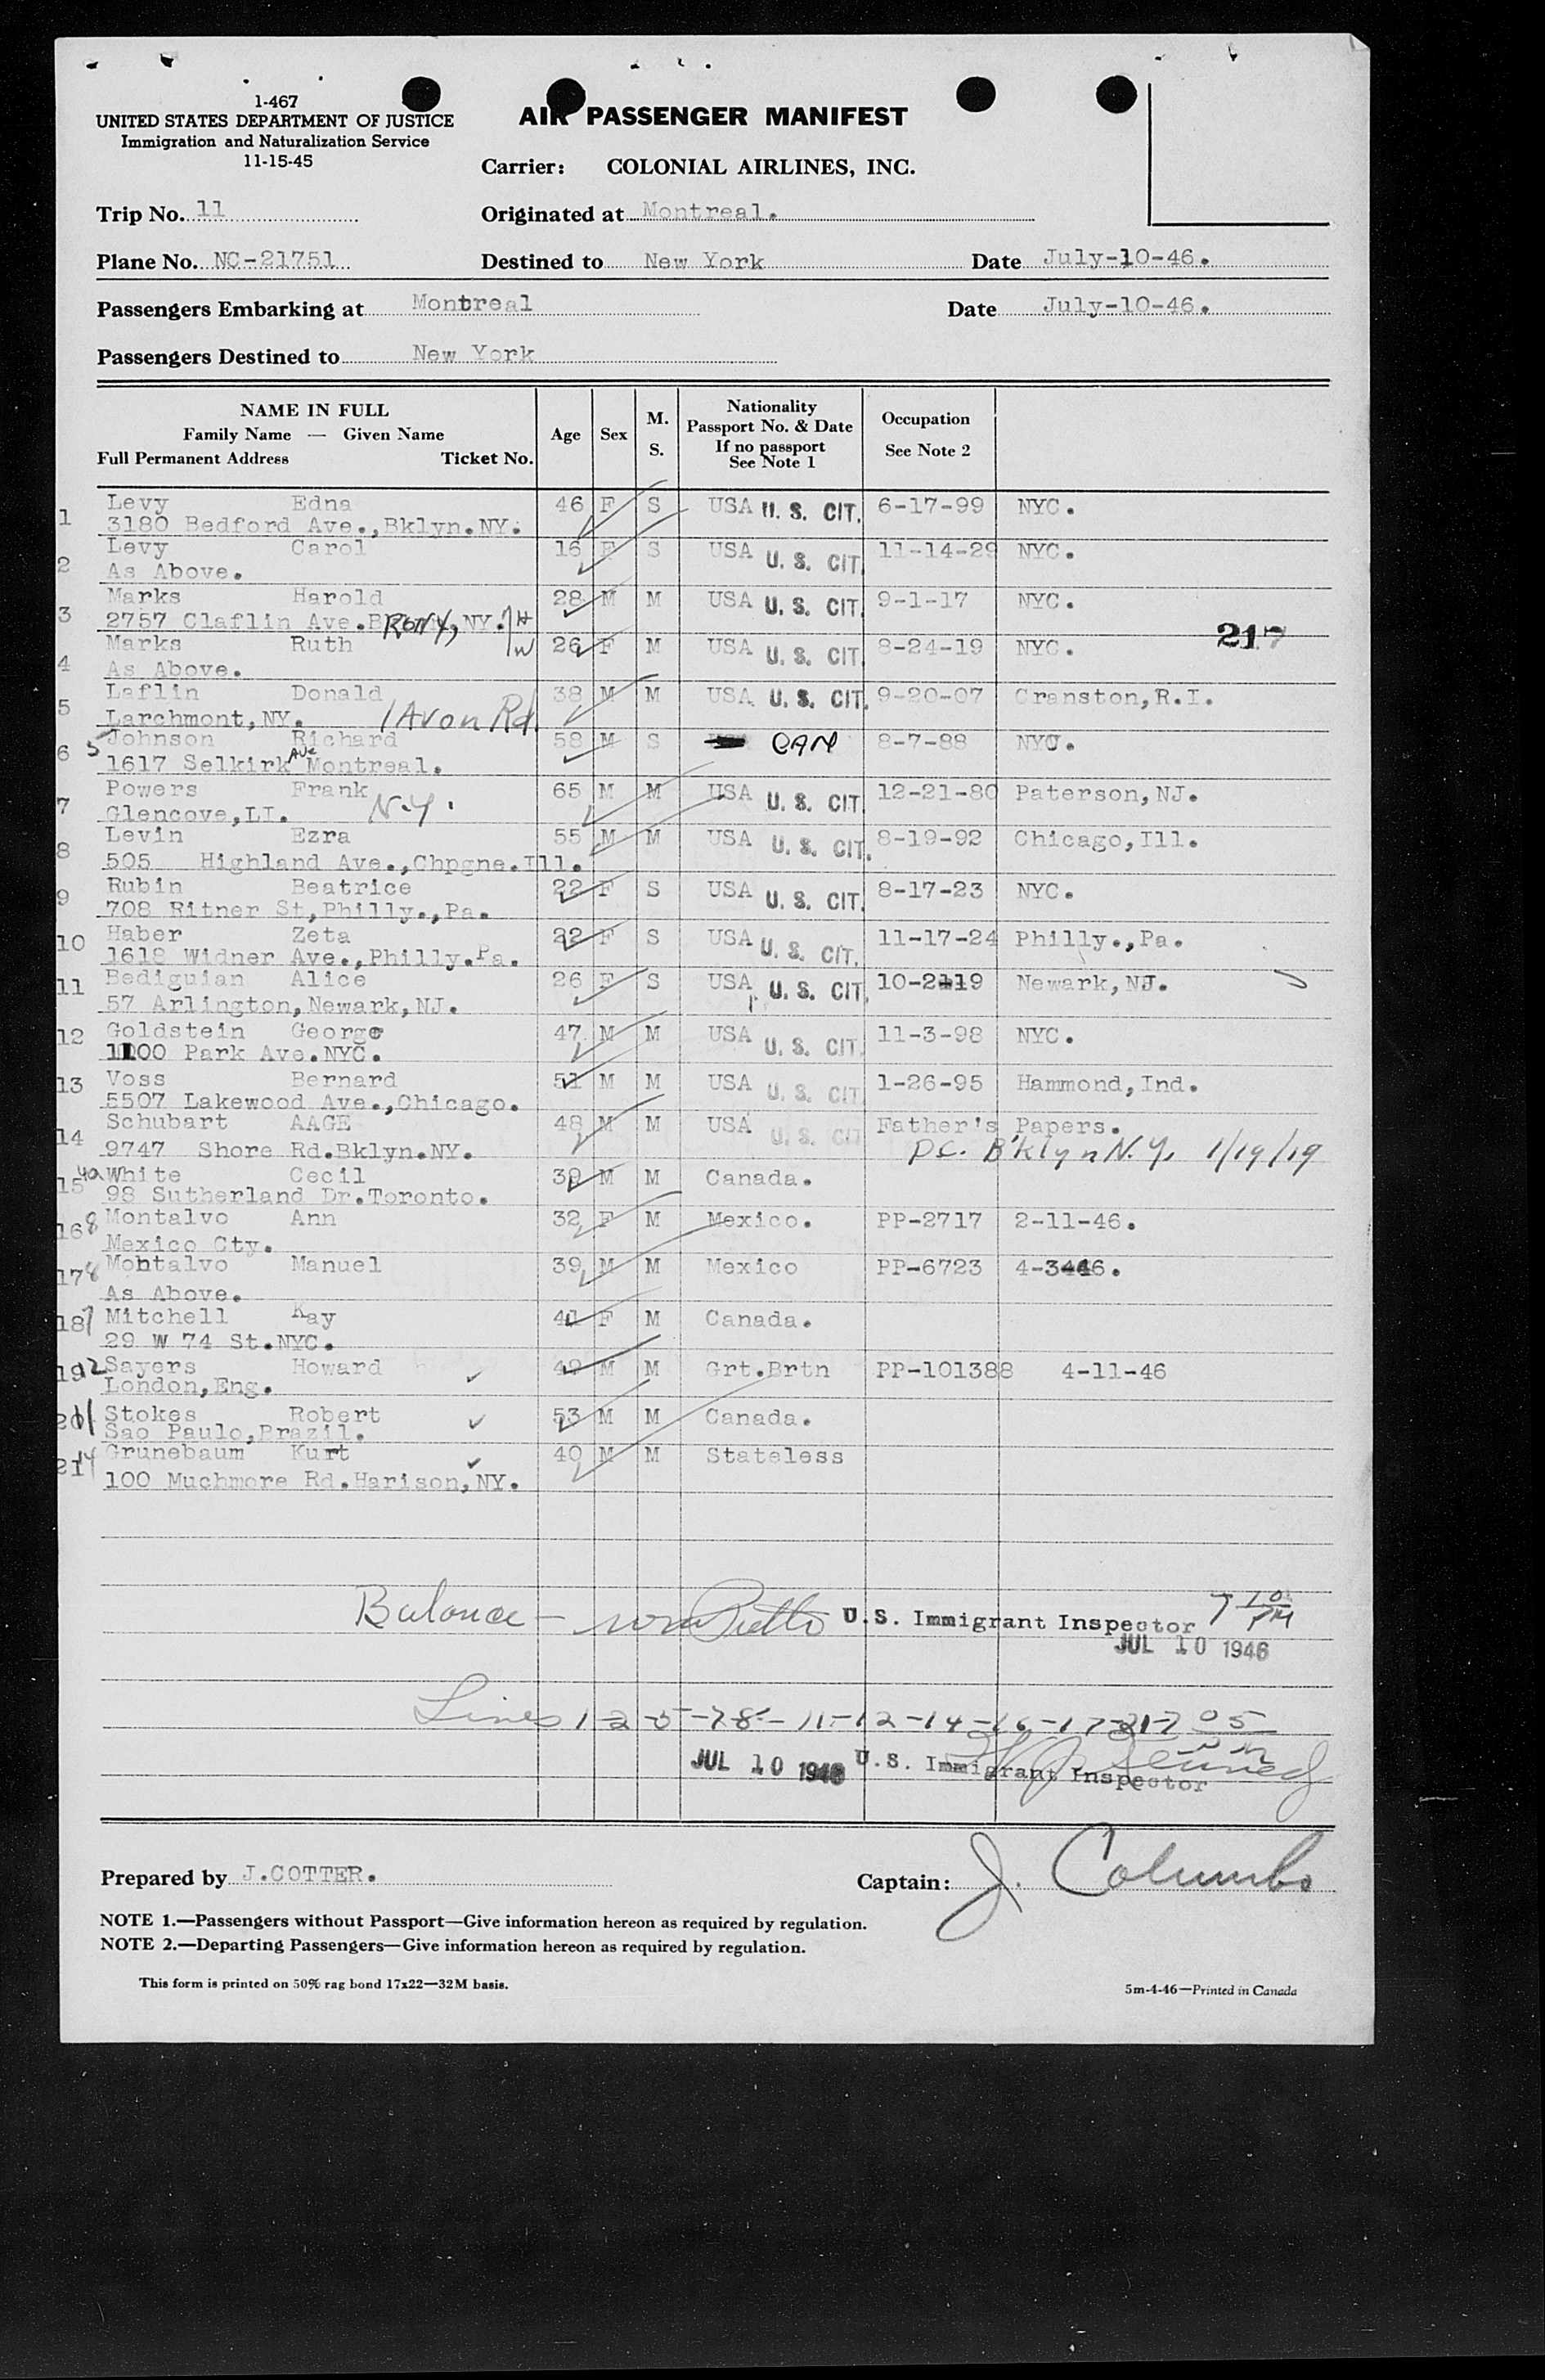 1-467
UNITED STATES DEPARTMENT OF JUSTICE
Immigration and Naturalization Service
11-15-45
AIR PASSENGER MANIFEST
Carrier: COLONIAL AIRLINES, INC.
Trip No. 11 Originated at Montreal.
Plane No. NC-21751 Destined to New York Date July-10-46.
Passengers Embarking at Montreal Date July-10-46.
Passengers Destined to New York
NAME IN FULL
Family Name — Given Name
Full Permanent Address Ticket No.
Age Sex M. S.
Nationality
Passport No. & Date
If no passport
See Note 1
Occupation
See Note 2
1 Levy Edna 46 F S USA U. S. CIT. 6-17-99 NYC.
3180 Bedford Ave.,Bklyn.NY.
2 Levy Carol 16 F S USA U. S. CIT. 11-14-29 NYC.
As Above.
3 Marks Harold 28 M M USA U. S. CIT. 9-1-17 NYC.
2757 Claflin Ave. NY. H
217
4 Marks Ruth W 26 F M USA U. S. CIT. 8-24-19 NYC.
As Above.
5 Laflin Donald 38 M M USA U. S. CIT. 9-20-07 Cranston,R.I.
Larchmont,NY. 1 Avon Rd.
6 5 Johnson Richard 58 M S CAN 8-7-88 NYC.
1617 Selkirk Ave Montreal.
7 Powers Frank 65 M M USA U. S. CIT. 12-21-80 Paterson,NJ.
Glencove,LI. N.Y.
8 Levin Ezra 55 M M USA U. S. CIT. 8-19-92 Chicago,Ill.
505 Highland Ave.,Chpgne.Ill.
9 Rubin Beatrice 22 F S USA U. S. CIT. 8-17-23 NYC.
708 Ritner St,Philly.,Pa.
10 Haber Zeta 22 F S USA U. S. CIT. 11-17-24 Philly.,Pa.
1618 Widner Ave.,Philly.Pa.
11 Bediguian Alice 26 F S USA U. S. CIT. Newark,NJ.
57 Arlington,Newark,NJ.
12 Goldstein George 47 M M USA U. S. CIT. 11-3-98 NYC.
1100 Park Ave.NYC.
13 Voss Bernard 51 M M USA U. S. CIT. 1-26-95 Hammond,Ind.
5507 Lakewood Ave.,Chicago.
14 Schubart AAGE 48 M M USA U. S. CIT Father's Papers.
9747 Shore Rd.Bklyn.NY. DC. B'klyn N.Y. 1/19/19
15 4a White Cecil 39 M M Canada.
98 Sutherland Dr.Toronto.
16 8 Montalvo Ann 32 F M Mexico. PP-2717 2-11-46.
Mexico Cty.
17 8 Montalvo Manuel 39 M M Mexico PP-6723
As Above.
18 Mitchell Kay 41 F M Canada.
29 W 74 St.NYC.
19 2 Sayers Howard 49 M M Grt.Brtn PP-101388 4-11-46
London,Eng.
20 Stokes Robert 53 M M Canada.
Sao Paulo,Brazil.
21 Grunebaum Kurt 40 M M Stateless
100 Muchmore Rd.Harison,NY.
Balance - U.S. Immigrant Inspector 7 10 PM
JUL 10 1946
Lines 1-2-5-7-8-11-12-14-16-17-21-7 05
PM
JUL 10 1946 U.S. Immigrant Inspector
Prepared by J.COTTER. Captain: J. Columbo
NOTE 1.—Passengers without Passport—Give information hereon as required by regulation.
NOTE 2.—Departing Passengers—Give information hereon as required by regulation.
This form is printed on 50% rag bond 17x22—32M basis.
5m-4-46—Printed in Canada